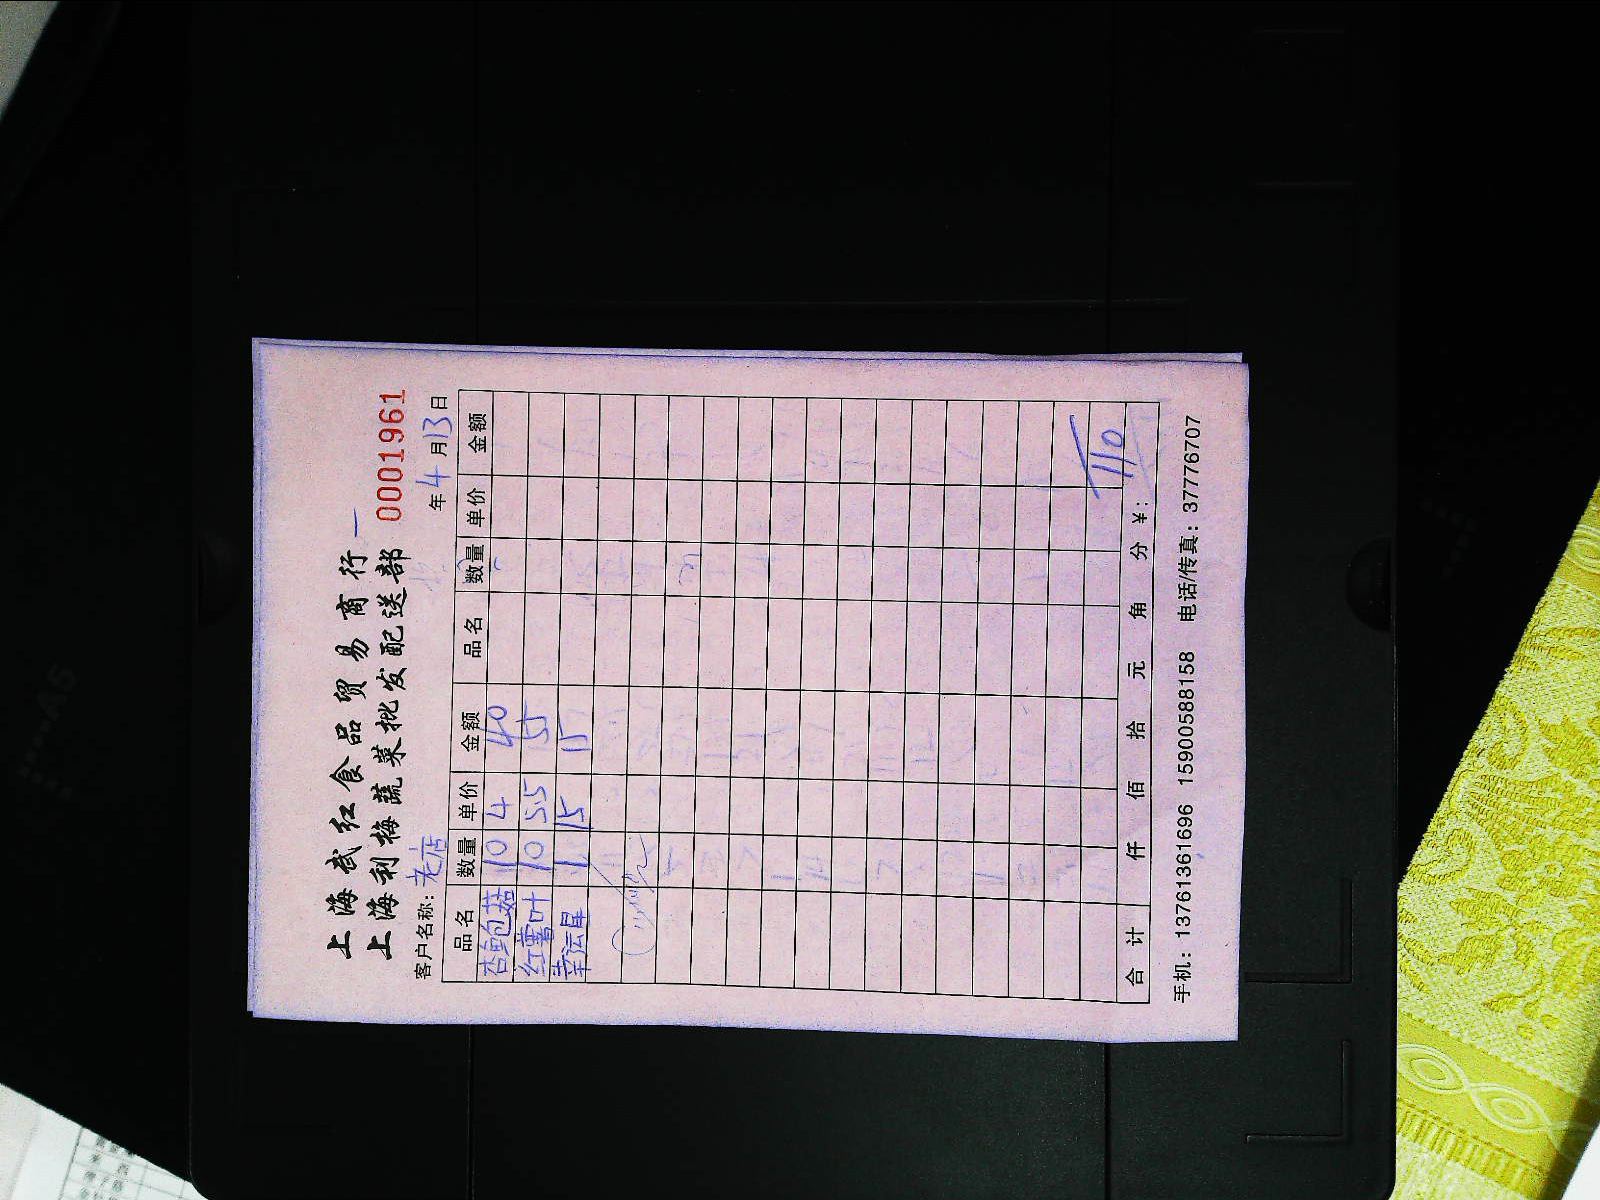 上海武红食品贸易商行
上海利梅蔬菜批发配送部
0001961
客户名称：老店 年4月13日
品名 数量 单价 金额 品名 数量 单价 金额
杏鲍菇 10 4 40
红薯叶 10 5.5 55
幸运星 1 15 15
110
合计 仟 佰 拾 元 角 分 ¥：
手机：13761361696 15900588158 电话/传真：37776707